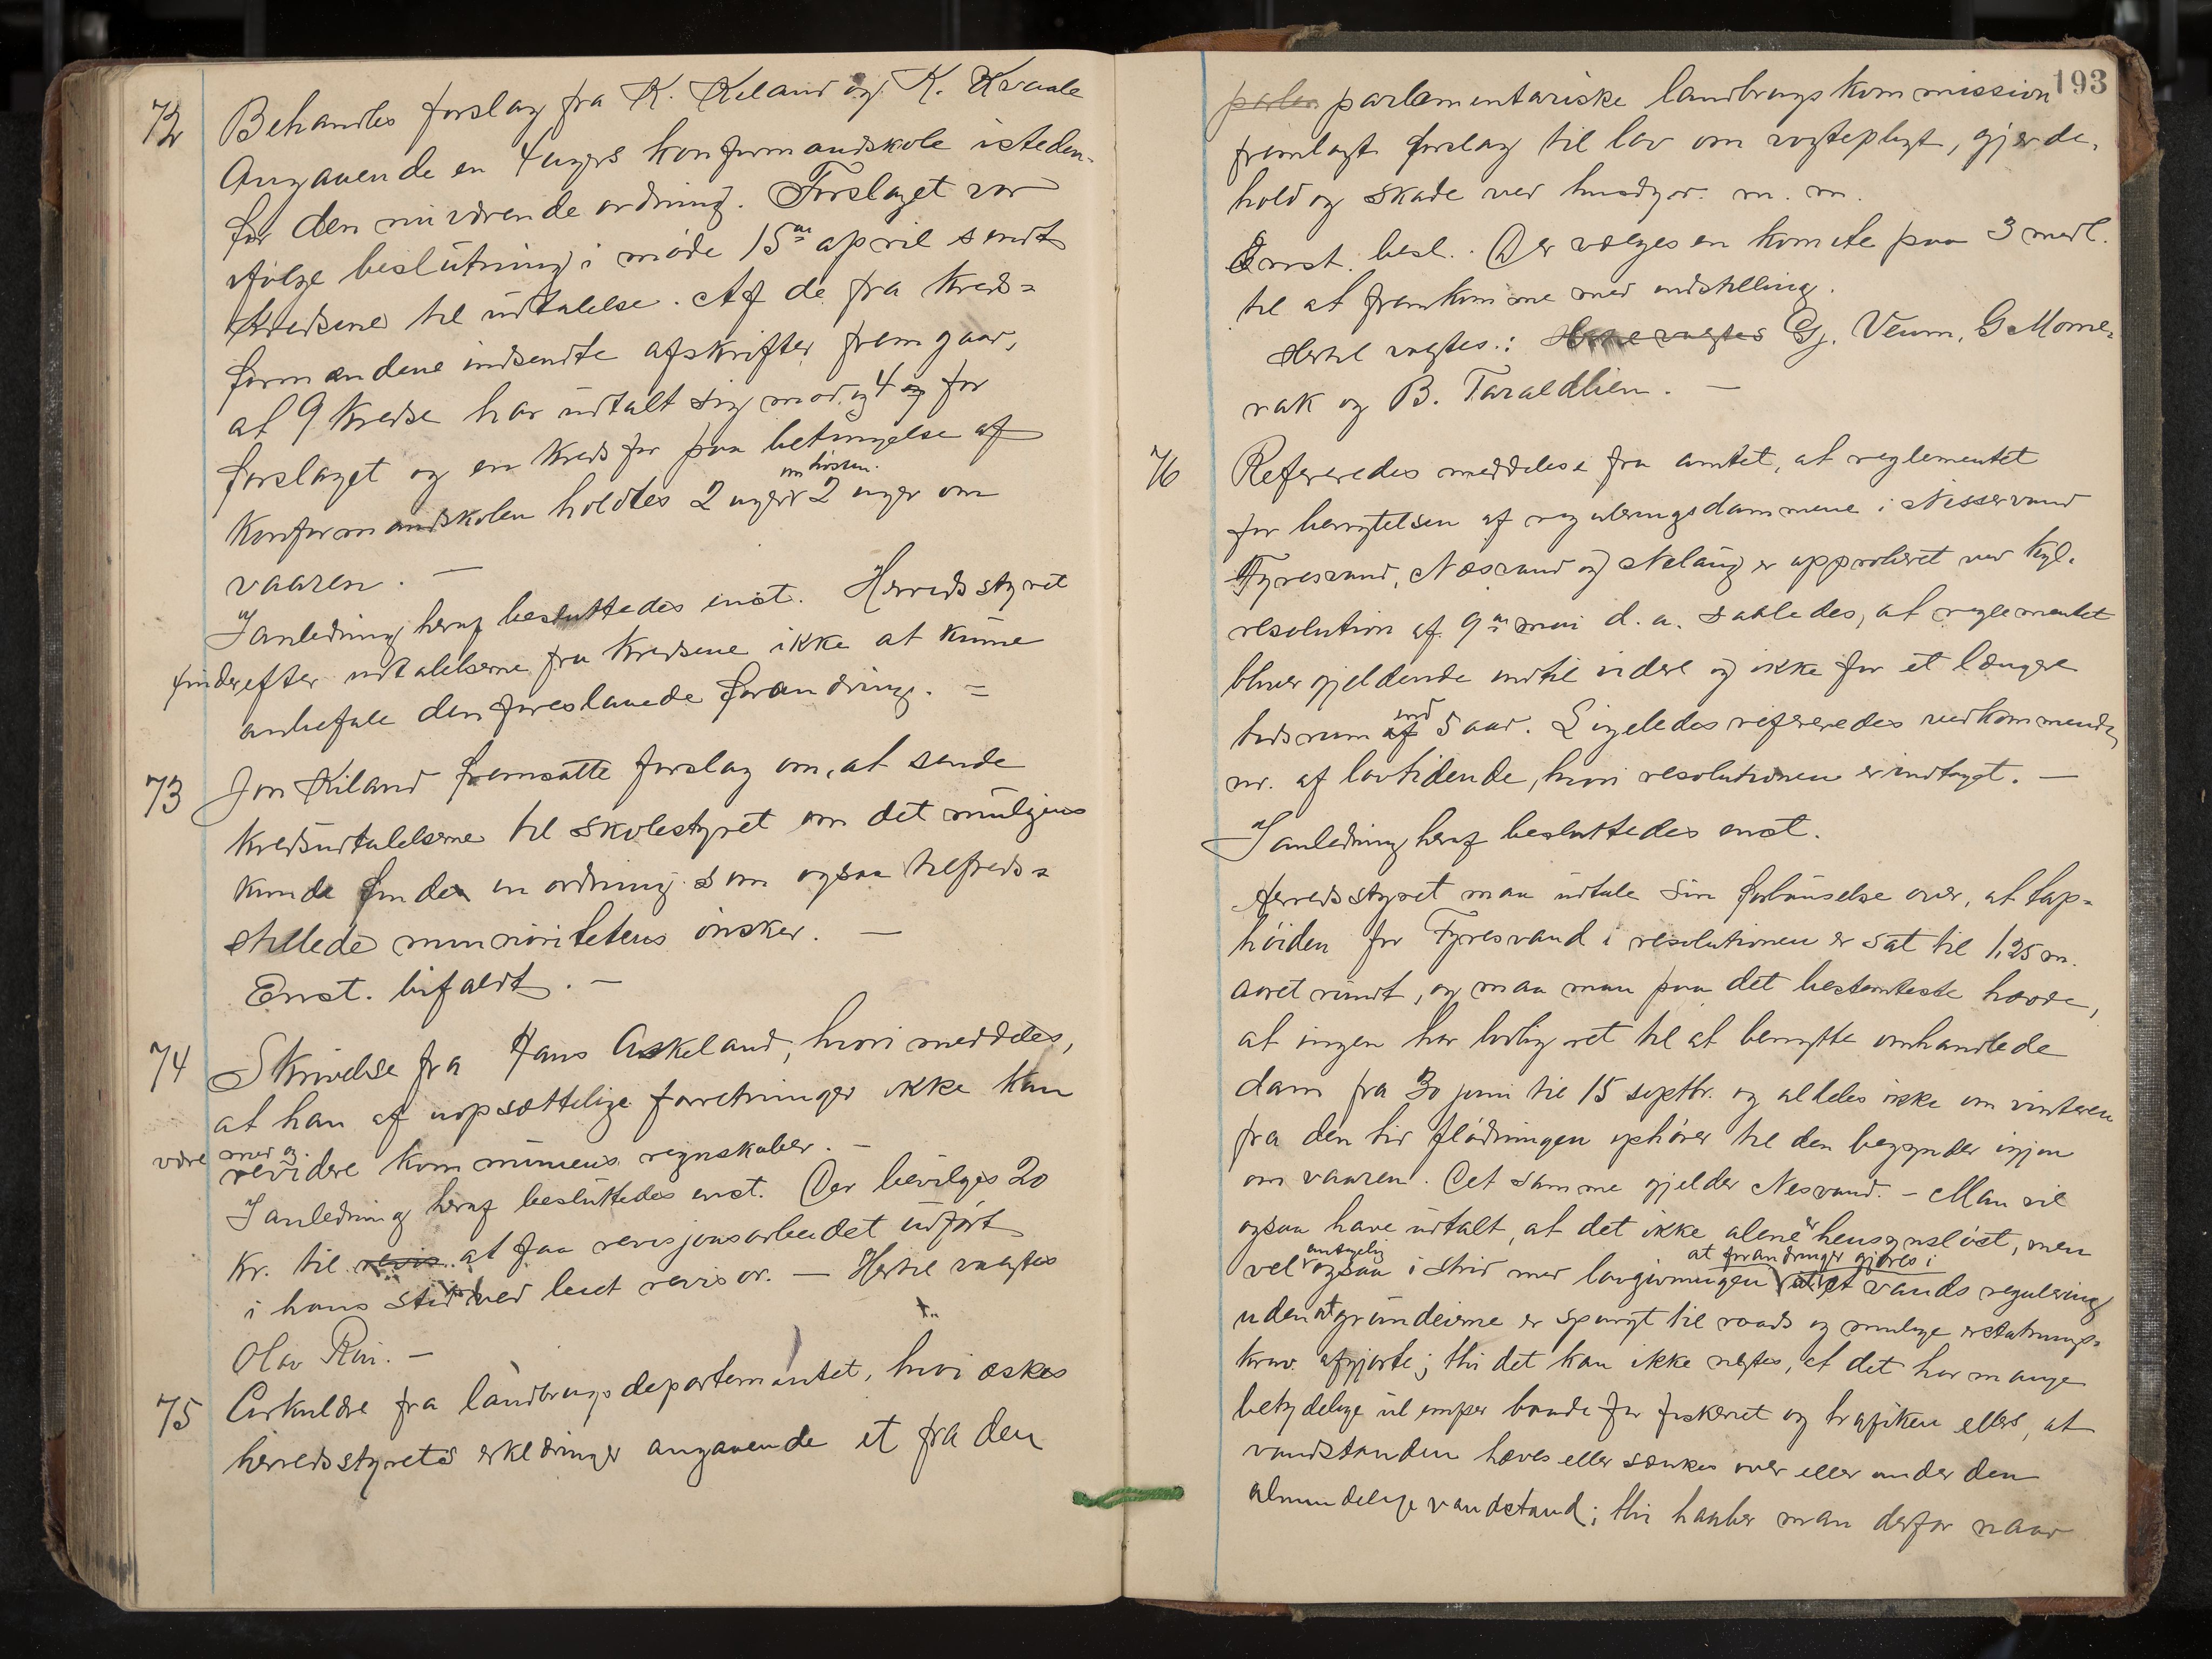 72 Behandles forslag fra K. Kiland og K. Kvaale
Angaaende en 4 ugers konfirmandskole isteden-
for den nuværende ordning. Forslaget var
ifølge beslutning i møde 15de april sendt
Kredsene til udtalelse. Af de fra kreds=
formændene indsendte afskrifter fremgaar,
at 9 kredse har udtalt sig mod og 4 for
forslaget og en kreds for paa betingelse af
om høsten
Konfirmandskolen holdtes 2 uger 2 uger om
vaaren. —
I anledning heraf besluttedes enst. Herredsstyret
finder efter udtalelserne fra kredsene ikke at kunne
anbefale den foreslaaede forandring. =
73 Jon Kiland fremsatte forslag om, at sende
kredsudtalelserne til skolestyret om det muligens
kunde finde en ordning som ogsaa tilfreds=
stillede minoritetens ønsker. —
Enst. bifaldt. —
74 Skrivelse fra Hans Askeland, hvori meddeles,
at han af uopsættelige forretninger ikke kan
være med og
revidere kommunens regnskaber. —
I anledning heraf besluttedes enst. Der bevilges 20
kr. til revis. at faa revisjonsarbeidet udført
i hans sted ved leiet revisor. — Hertil valgtes
Olav Roi. —
75 Cirkulære fra landbrugsdepartementet, hvori æskes
herredsstyrets erklæringer angaaende et fra den
193
parlem parlementariske landbrugskommission
fremlagt forslag til lov om vogtepligt, gjerde,
hold og skade ved husdyr. m. m.
Enst. besl. Der vælges en komite paa 3 medl.
til at fremkomme med indstilling.
Hertil valgtes: Gj. Veum, G Mome-
rak og B. Taraldlien. —
76 Refereredes meddelelse fra amtet, at reglementet
for benyttelsen af reguleringsdammene i Nisservand
Fyresvand, Næsvand og Nelaug er approberet ved kgl.
resolution af 9de mai d. a. saaledes, at reglementet
bliver gjeldende indtil videre og ikke for et længere
end
tidsrum af 5 aar. Ligeledes refereredes vedkommende
nr. af lovtidende, hvori resolutionen er indtaget. —
I anledning heraf besluttedes enst.
Herredsstyret maa udtale sin forbauselse over, at tap=
høiden for Fyresvand i resolutionen er sat til 1,25 m.
aaret rundt, og maa man paa det bestemteste hævde,
at ingen har lovlig ret til at benytte omhandlede
dam fra 30 juni til 15 septbr. og aldeles ikke om vinteren
fra den tid flødningen ophører til den begynder igjen
om vaaren. Det samme gjelder Nesvand. – Man vil
ogsaa have udtalt, at det ikke alene er hensynsløst, men
antagelig at forandringer gjøres i
vel ogsaa i strid med lovgivningen et vands regulering
uden at grundeierne er spurgt til raads og mulige erstatnings=
krav afgjorte; thi det kan ikke negtes, at det har mange
betydelige ulemper baade for fiskeriet og trafiken ellers, at
vandstanden hæves eller sænkes over eller under den
almindelige vandstand; thi haaber man derfor naar